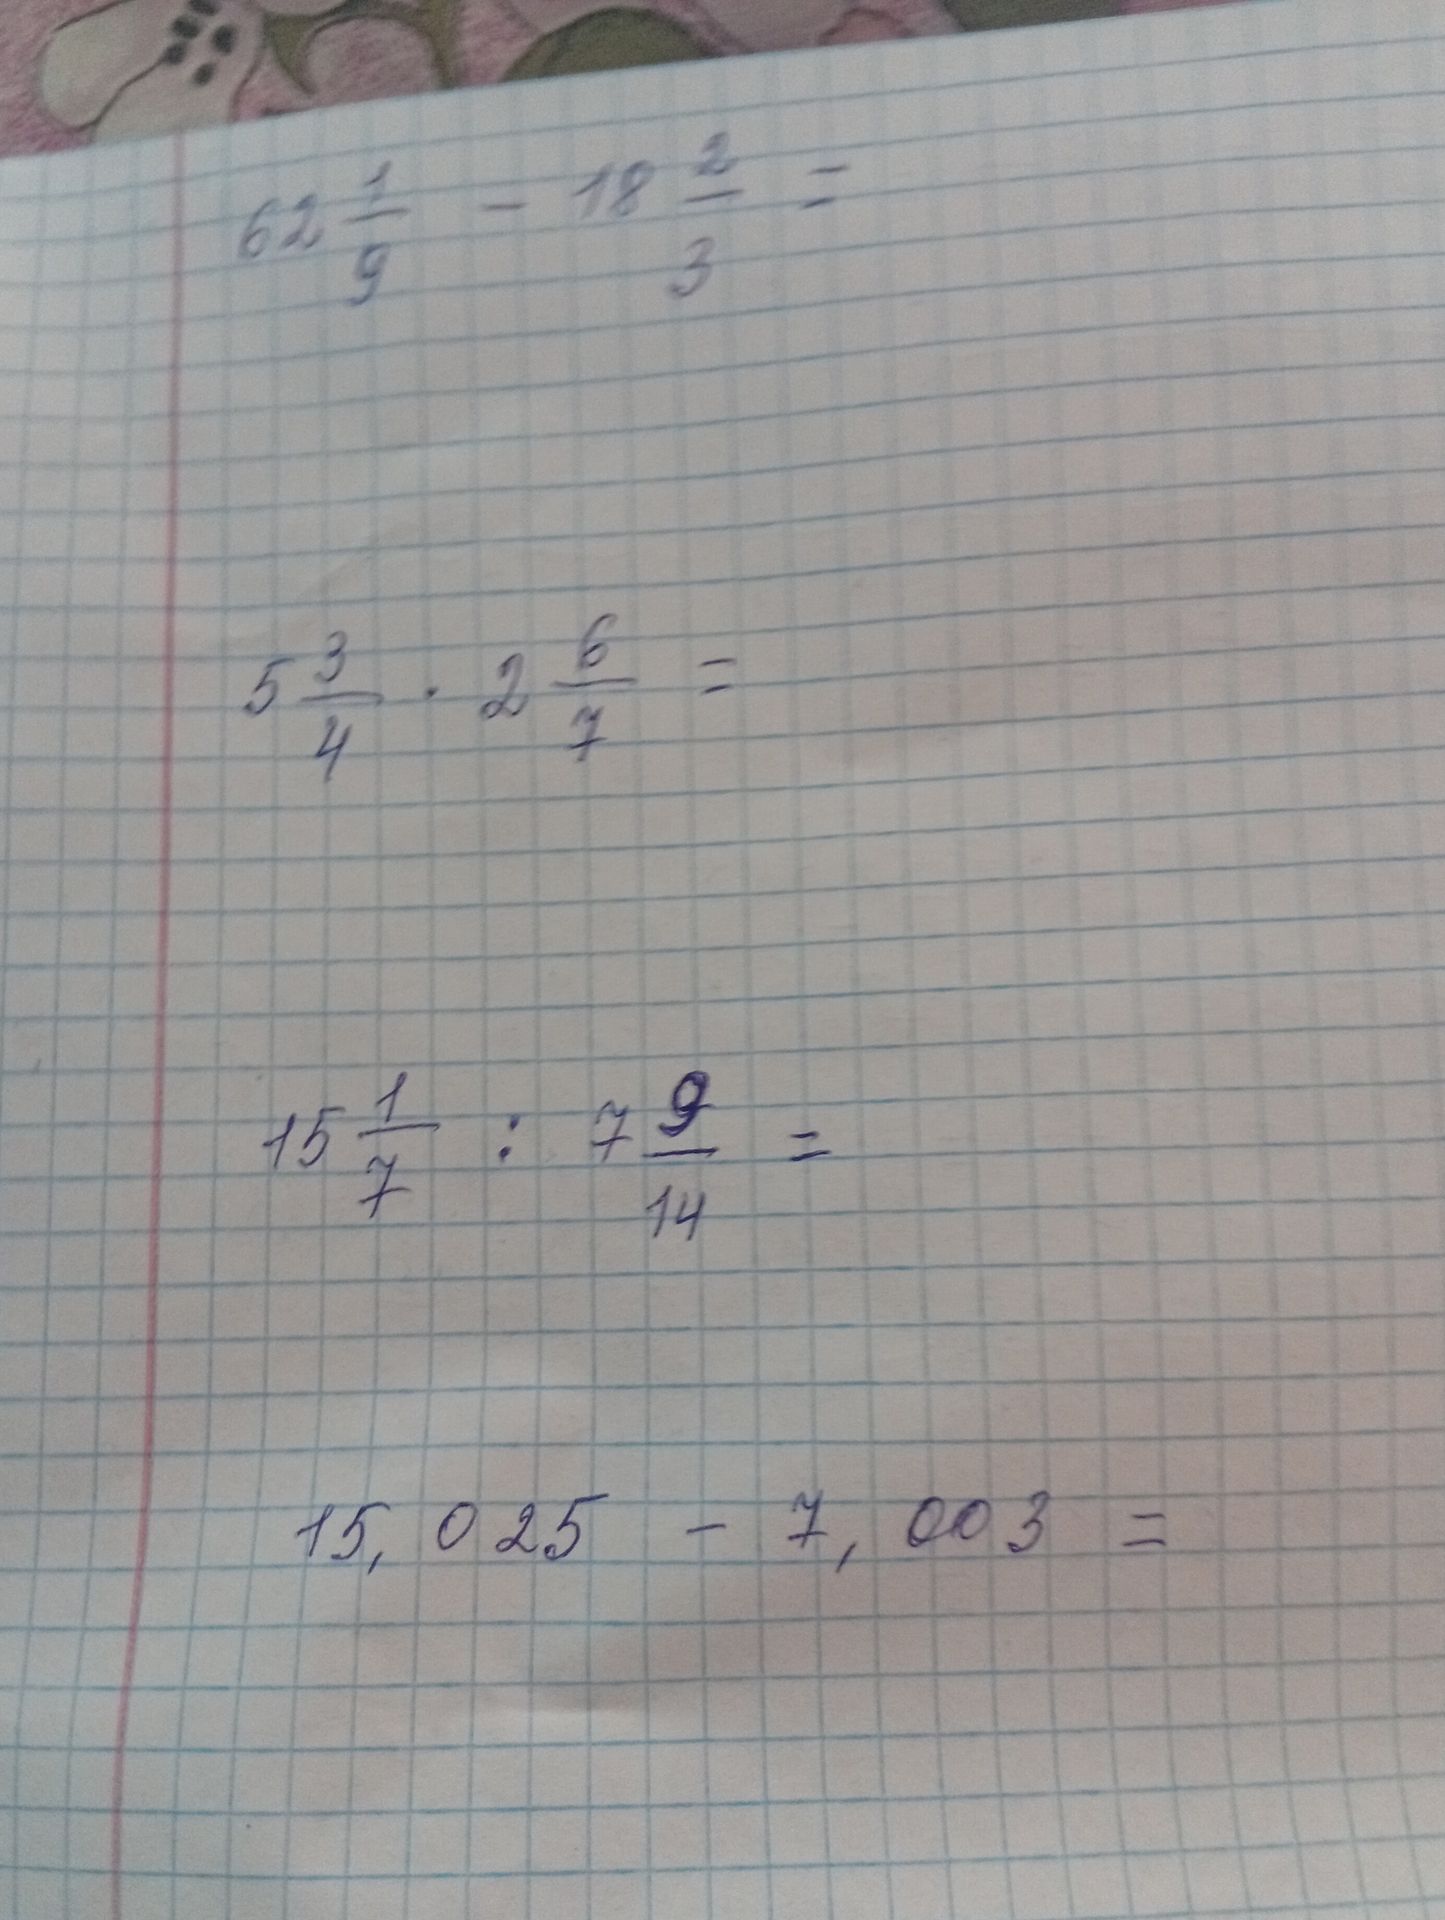 62 1/9 - 18 2/3 =
5 3/4 · 2 6/7 =
15 1/7 : 7 9/14 =
15,025 - 7,003 =